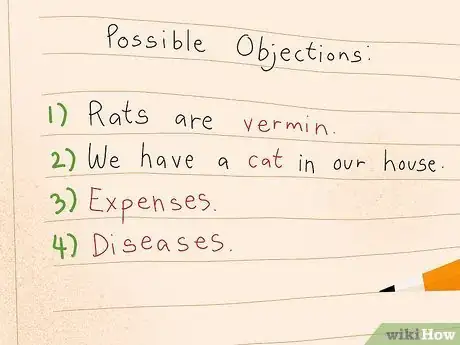 Possible Objections:
1) Rats are vermin.
2) We have a cat in our house.
3) Expenses.
4) Diseases.
wikiHow